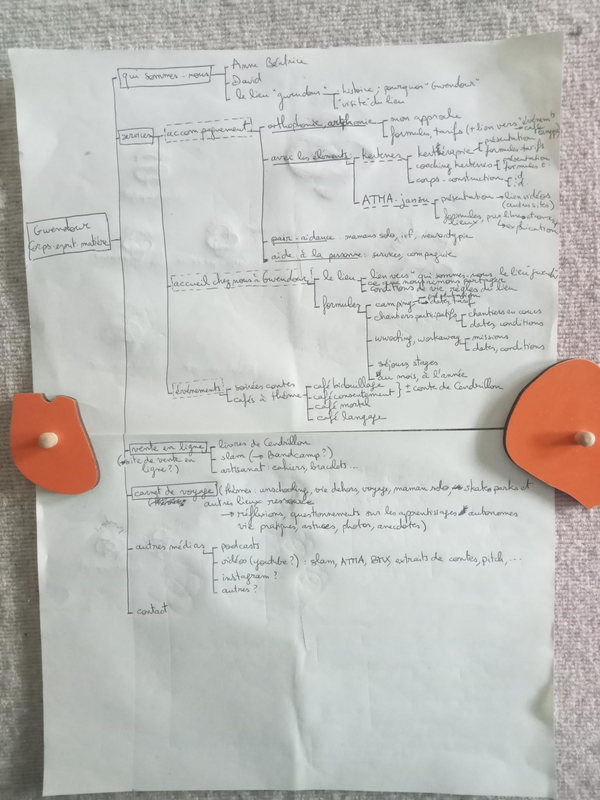 Anne Béatrice
qui sommes-nous
David
le lieu "gwendour"
histoire: pourquoi "Gwendour"
visite du lieu
services
accompagnement
orthophonie, 
mon approche
formules, tarifs (+ lien vers
avec les éléments
kerterres
présentation
formules tarifs
présentation
corps-construction
ATMA-jansu
présentation
lien vidéos
(autres sites)
formules,
Gwendour
Corps.esprit.matière
pair-aidance: mamans solo, ief, neuroatypie
aide à la personne: services, compagnie
accueil chez nous à Gwendour!
le lieu
lien vers "qui sommes-nous, le lieu
ce que nous aimons partager
conditions de vie, règles du lieu
formules
camping
présentation
dates, tarif
chantiers participatifs
chantiers en cours
dates, conditions
wwoofing, workaway
missions
dates, conditions
séjours stages
au mois, à l'année
événements
soirées contes
cafés à thème
café bidouillage
café consentement
café mortel
café langage
± conte de Cendrillon
vente en ligne
(site de vente en
ligne?)
livres de Cendrillon
slam (→ Bandcamp?)
artisanat: cahiers, bracelets...
carnet de voyage
(thèmes: unschooling, vie dehors, voyages, maman solo, skate parks et
autres lieux ressource
→ réflexions, questionnements sur les apprentissages autonomes
vie pratique, astuces, photos, anecdotes)
autres médias
podcasts
vidéos (youtube?): slam, ATMA, extraits de contes, pitch, ...
instagram?
autres?
contact